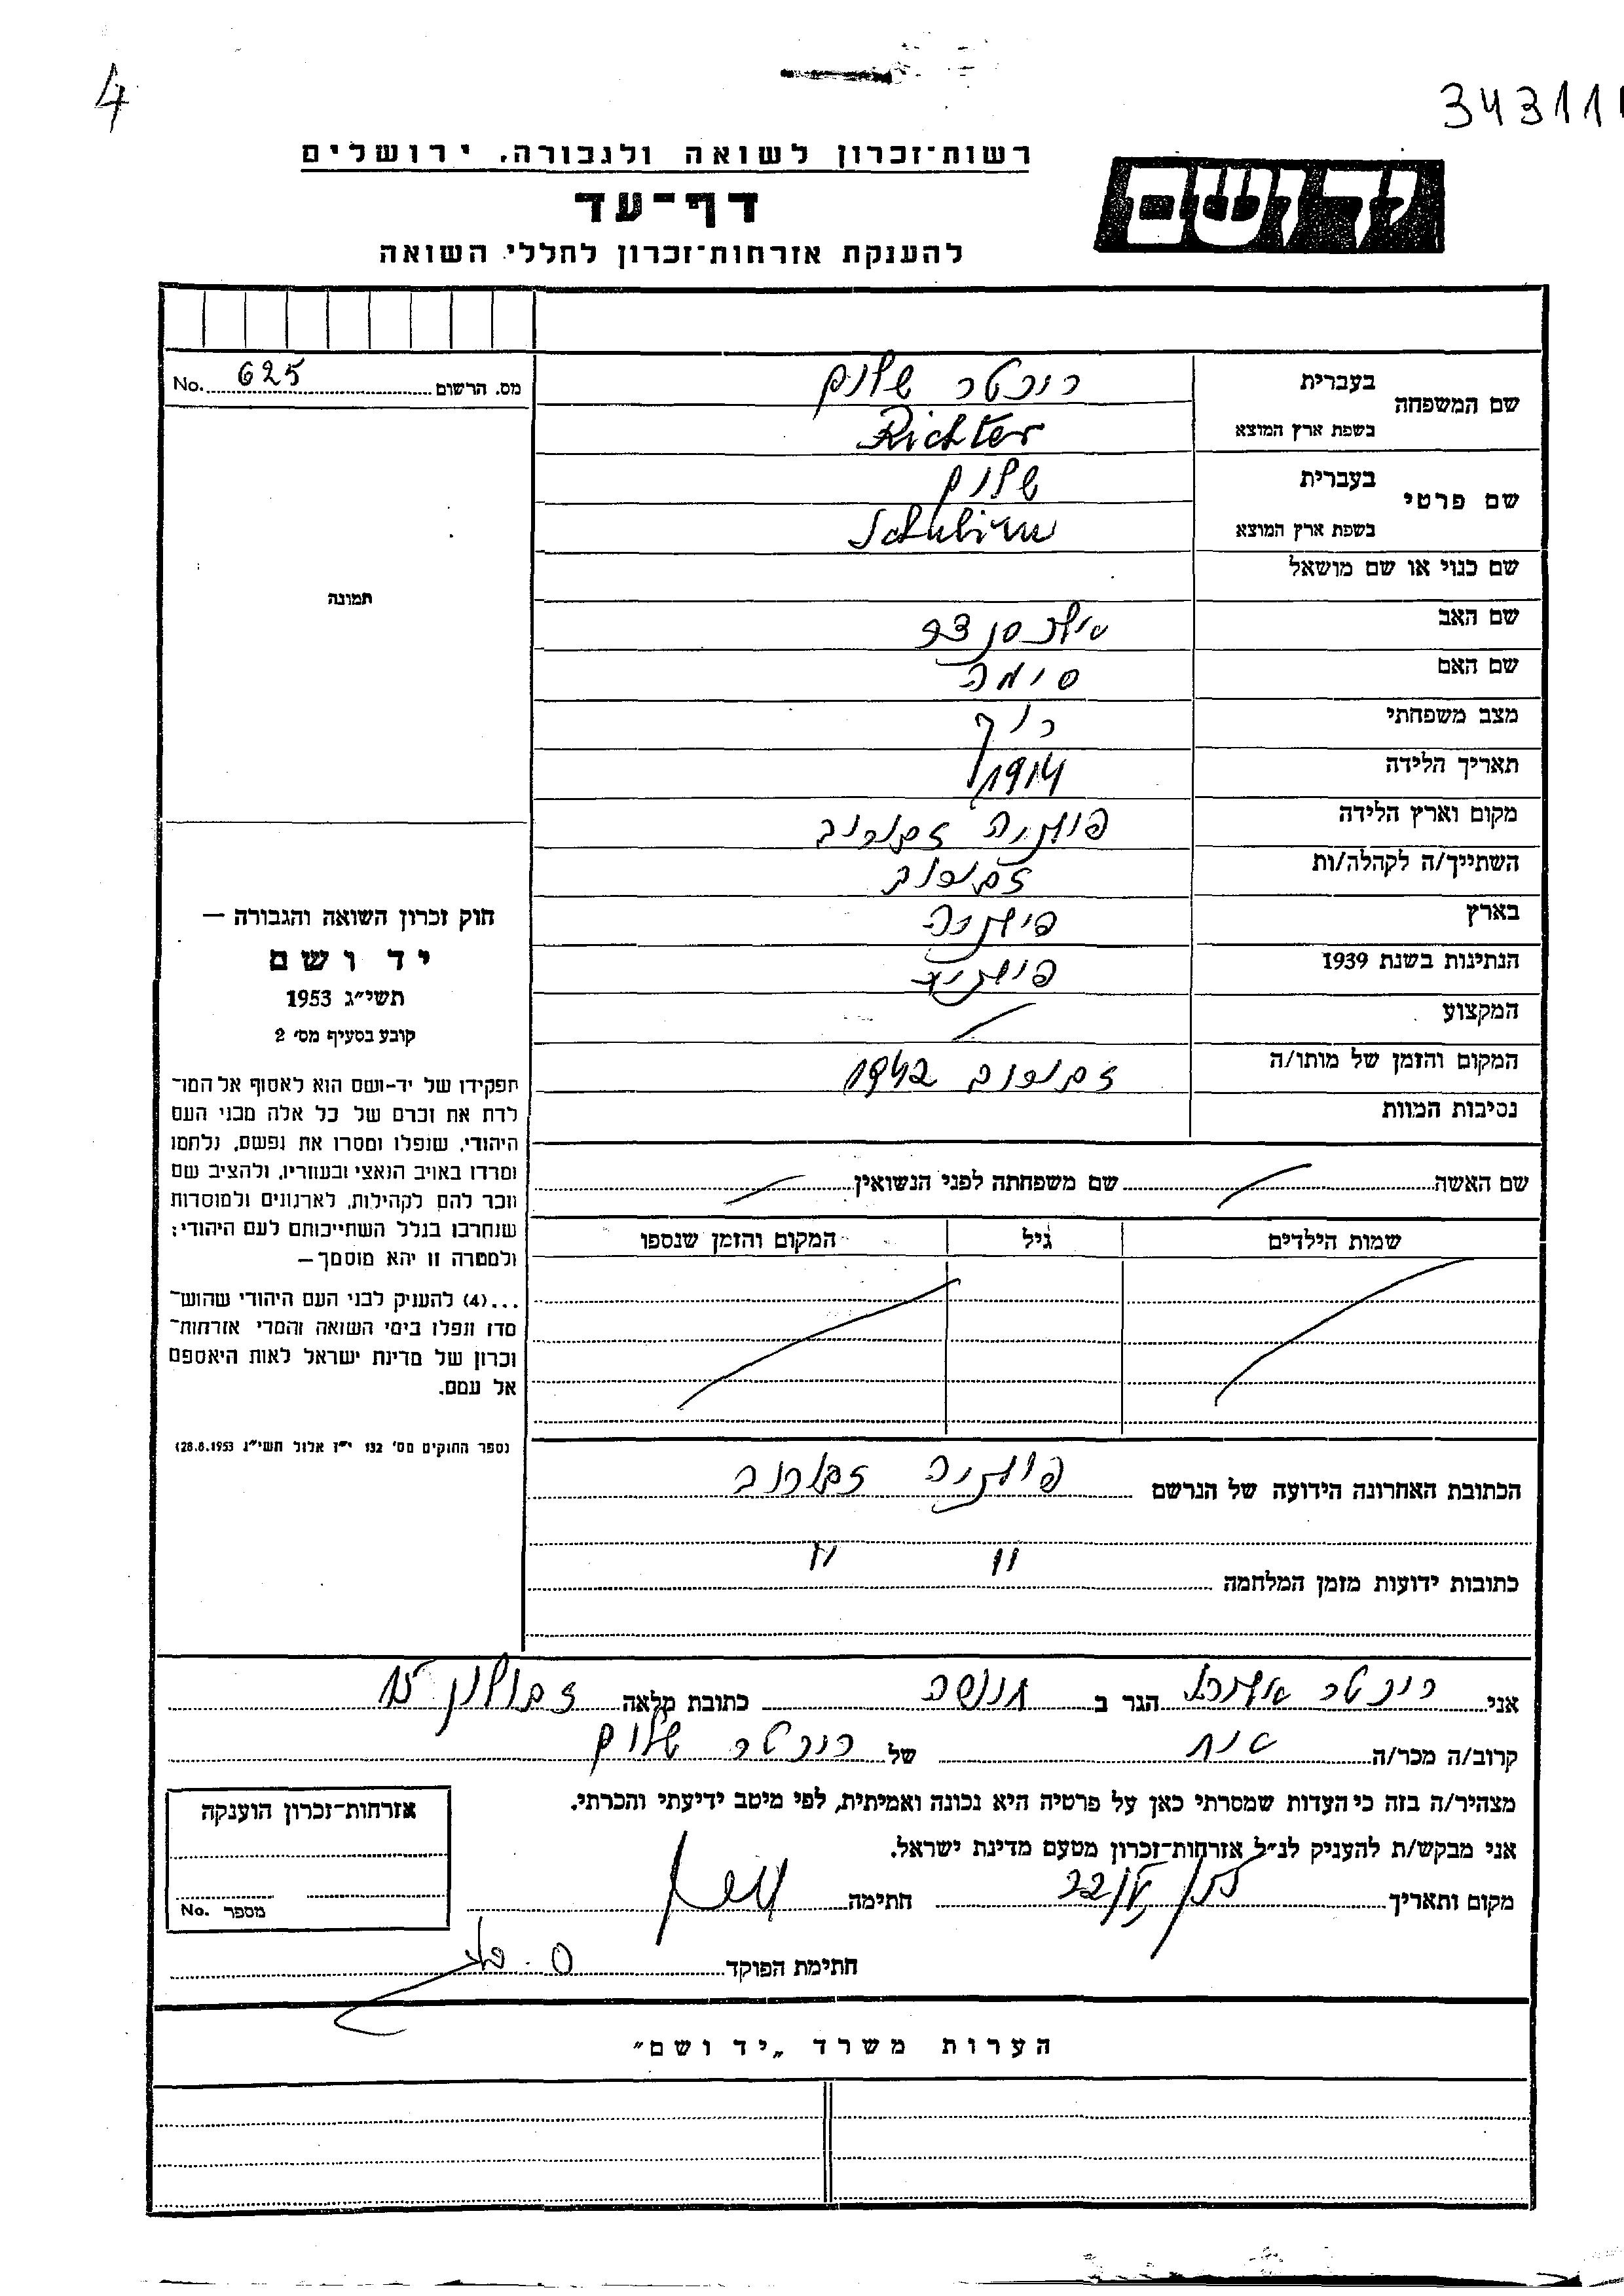 4
343111
רשות־זכרון לשואה ולגבורה, ירושלים
ידושם
דף־עד
להענקת אזרחות־זכרון לחללי השואה
מס. הרשום 625 No.
תמונה
שם המשפחה
בעברית ריכטר שלום
בשפת ארץ המוצא Richter
שם פרטי
בעברית שלום
בשפת ארץ המוצא
שם כנוי או שם מושאל
שם האב
שם האם סימה
מצב משפחתי רוק
תאריך הלידה 1914
מקום וארץ הלידה פולניה זבורוב
השתייך/ה לקהלה/ות זבורוב
בארץ פולניה
הנתינות בשנת 1939 פולנית
המקצוע
המקום והזמן של מותו/ה זבורוב 1942
נסיבות המוות
שם האשה
שם משפחתה לפני הנשואין
שמות הילדים
גיל
המקום והזמן שנספו
הכתובת האחרונה הידועה של הנרשם פולניה זבורוב
כתובות ידועות מזמן המלחמה " "
חוק זכרון השואה והגבורה —
יד ושם
תשי״ג 1953
קובע בסעיף מס׳ 2
תפקידו של יד-ושם הוא לאסוף אל המו־
לדת את זכרם של כל אלה מבני העם
היהודי, שנפלו ומסרו את נפשם, נלחמו
ומרדו באויב הנאצי ובעוזריו, ולהציב שם
וזכר להם לקהילות, לארגונים ולמוסדות
שנחרבו בגלל השתייכותם לעם היהודי;
ולמטרה זו יהא מוסמך—
...(4) להעניק לבני העם היהודי שהוש־
מדו ונפלו בימי השואה והמרי אזרחות־
זכרון של מדינת ישראל לאות היאספם
אל עמם.
(ספר החוקים מס׳ 132 י״ז אלול תשי״ג 28.8.1953)
אני ריכטר הגר ב מנשה כתובת מלאה זבולון 15
קרוב/ה מכר/ה אח של ריכטר שלום
מצהיר/ה בזה כי העדות שמסרתי כאן על פרטיה היא נכונה ואמיתית, לפי מיטב ידיעתי והכרתי.
אני מבקש/ת להעניק לנ״ל אזרחות־זכרון מטעם מדינת ישראל.
מקום ותאריך חתימה
חתימת הפוקד
אזרחות־זכרון הוענקה
מספר No.
הערות משרד „יד ושם״